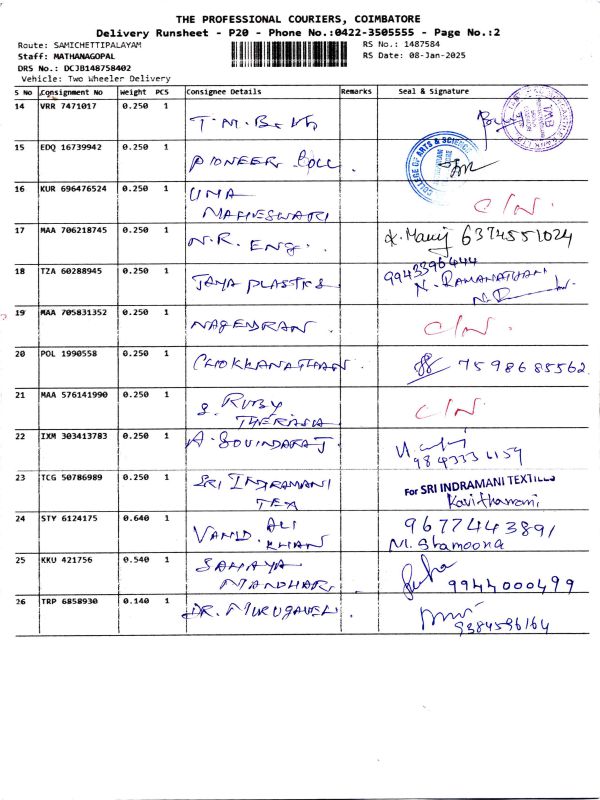 THE PROFESSIONAL COURIERS, COIMBATORE
Delivery Runsheet - P20 - Phone No.:0422-3505555 - Page No.:2
Route: SAMICHETTIPALAYAM RS No.: 1487584
Staff: MATHANAGOPAL RS Date: 08-Jan-2025
DRS No.: DCJB148758402
Vehicle: Two Wheeler Delivery
S No Consignment No Weight PCS Consignee Details Remarks Seal & Signature
14 VRR 7471017 0.250 1 T.M.B
15 EDQ 16739942 0.250 1 PIONEER COLL. COLLEGE OF ARTS & SCIENCE
16 KUR 696476524 0.250 1 UMA
MAHESWARI C/N.
17 MAA 706218745 0.250 1 N.R. ENG. K. Manij 6374551024
18 TZA 60288945 0.250 1 JAYA PLASTICS 9943396444
N. RAMANATHAN
19 MAA 705831352 0.250 1 NAGENDRAN. C/N.
20 POL 1990558 0.250 1 CHOKKANATHAN. 7598685562
21 MAA 576141990 0.250 1 S. RUBY
THERASA C/N.
22 IXM 303413783 0.250 1 A. GOVINDARAJ.
23 TCG 50786989 0.250 1 SRI INDRAMANI
TEX For SRI INDRAMANI TEXTILES
Kavithamani
24 STY 6124175 0.640 1 ALI
KHAN 9677443891
M. Shamoona
25 KKU 421756 0.540 1 SAHAYA
9944000499
26 TRP 6858930 0.140 1 DR. MURUGAVEL.
9384596164